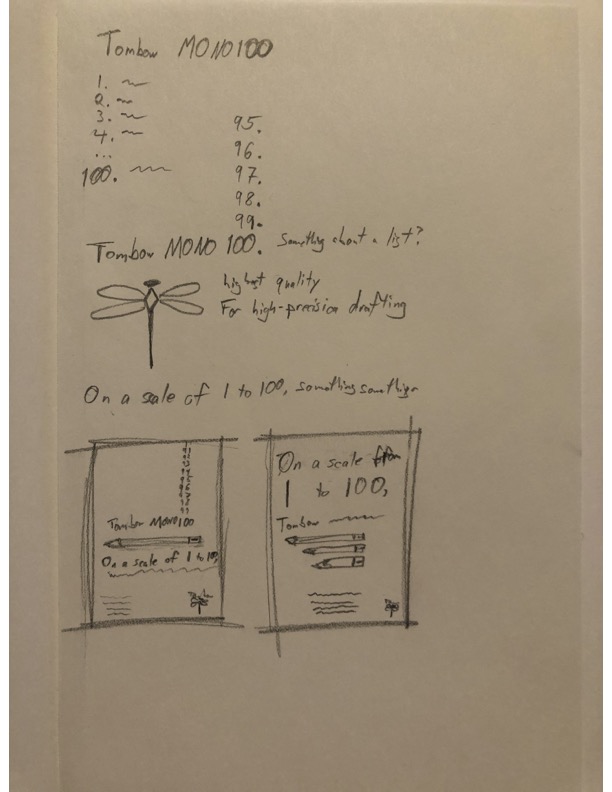 Tombow MONO100
1.
2.
3.
4.
...
100.
95.
96.
97.
98.
99.
Tombow MONO 100. Something about a list?
highest quality
For high-precision drafting
On a scale of 1 to 100, something something
Tombow MONO100
On a scale of 1 to 100,
On a scale from
1 to 100,
Tombow